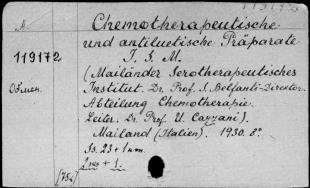 А.
Chemotherapeutische
und antiluetische Präparate
I. S. M.
119172
(Mailänder Serotherapeutisches
Обмен.
Institut. Dr. Prof. S. Belfanti-Director.
Abteilung Chemotherapie.
Leiter. Dr. Prof. U. Cazzani).
Mailand (Italien). 1930. 8°.
Ss. 23 + 1 нм.
2 экз + 1.
[75к]